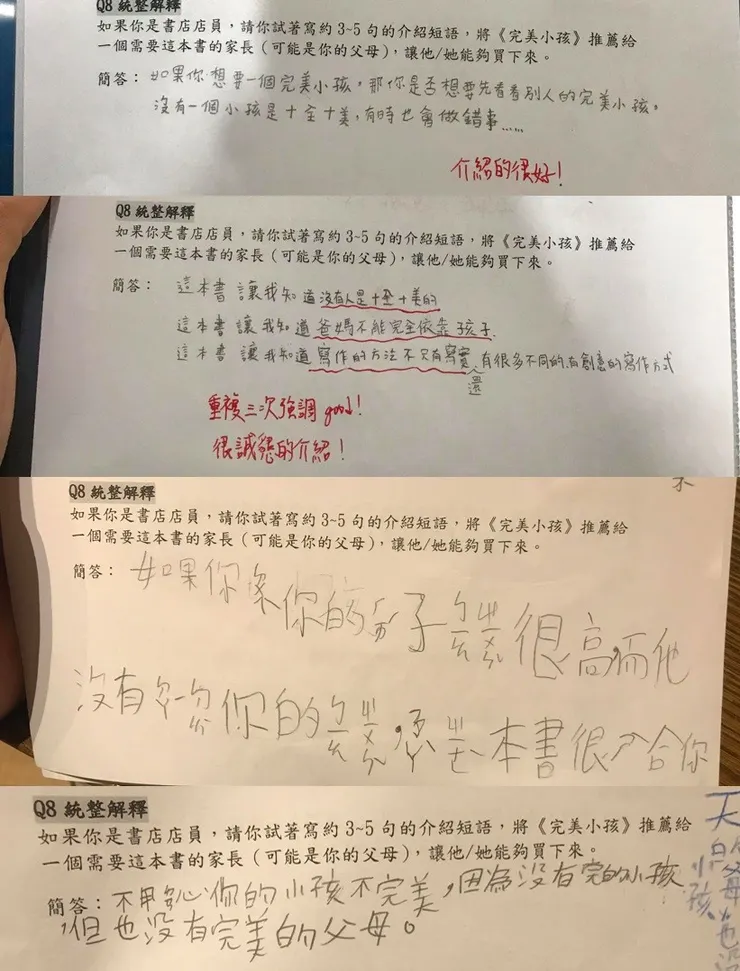 Q8 統整解釋
如果你是書店店員，請你試著寫約 3~5 句的介紹短語，將《完美小孩》推薦給
一個需要這本書的家長（可能是你的父母），讓他/她能夠買下來。
簡答：如果你想要一個完美小孩，那你是否想要先看看別人的完美小孩，
沒有一個小孩是十全十美，有時也會做錯事……
介紹的很好！
Q8 統整解釋
如果你是書店店員，請你試著寫約 3~5 句的介紹短語，將《完美小孩》推薦給
一個需要這本書的家長（可能是你的父母），讓他/她能夠買下來。
簡答：這本書讓我知道沒有人是十全十美的
這本書讓我知道爸媽不能完全依靠孩子.
這本書讓我知道寫作的方法不只有寫實，還有很多不同的,有創意的寫作方式
重複三次強調 good！
很誠懇的介紹！
不
Q8 統整解釋
如果你是書店店員，請你試著寫約 3~5 句的介紹短語，將《完美小孩》推薦給
一個需要這本書的家長（可能是你的父母），讓他/她能夠買下來。
簡答：如果你 你的分子ㄅㄠ ㄓㄡ很高,而他
沒有 你的 本書很 合你
Q8 統整解釋
如果你是書店店員，請你試著寫約 3~5 句的介紹短語，將《完美小孩》推薦給
一個需要這本書的家長（可能是你的父母），讓他/她能夠買下來。
簡答：不用 心你的小孩不完美，因為沒有完的小孩
，但也沒有完美的父母。
天 父母也沒
小孩